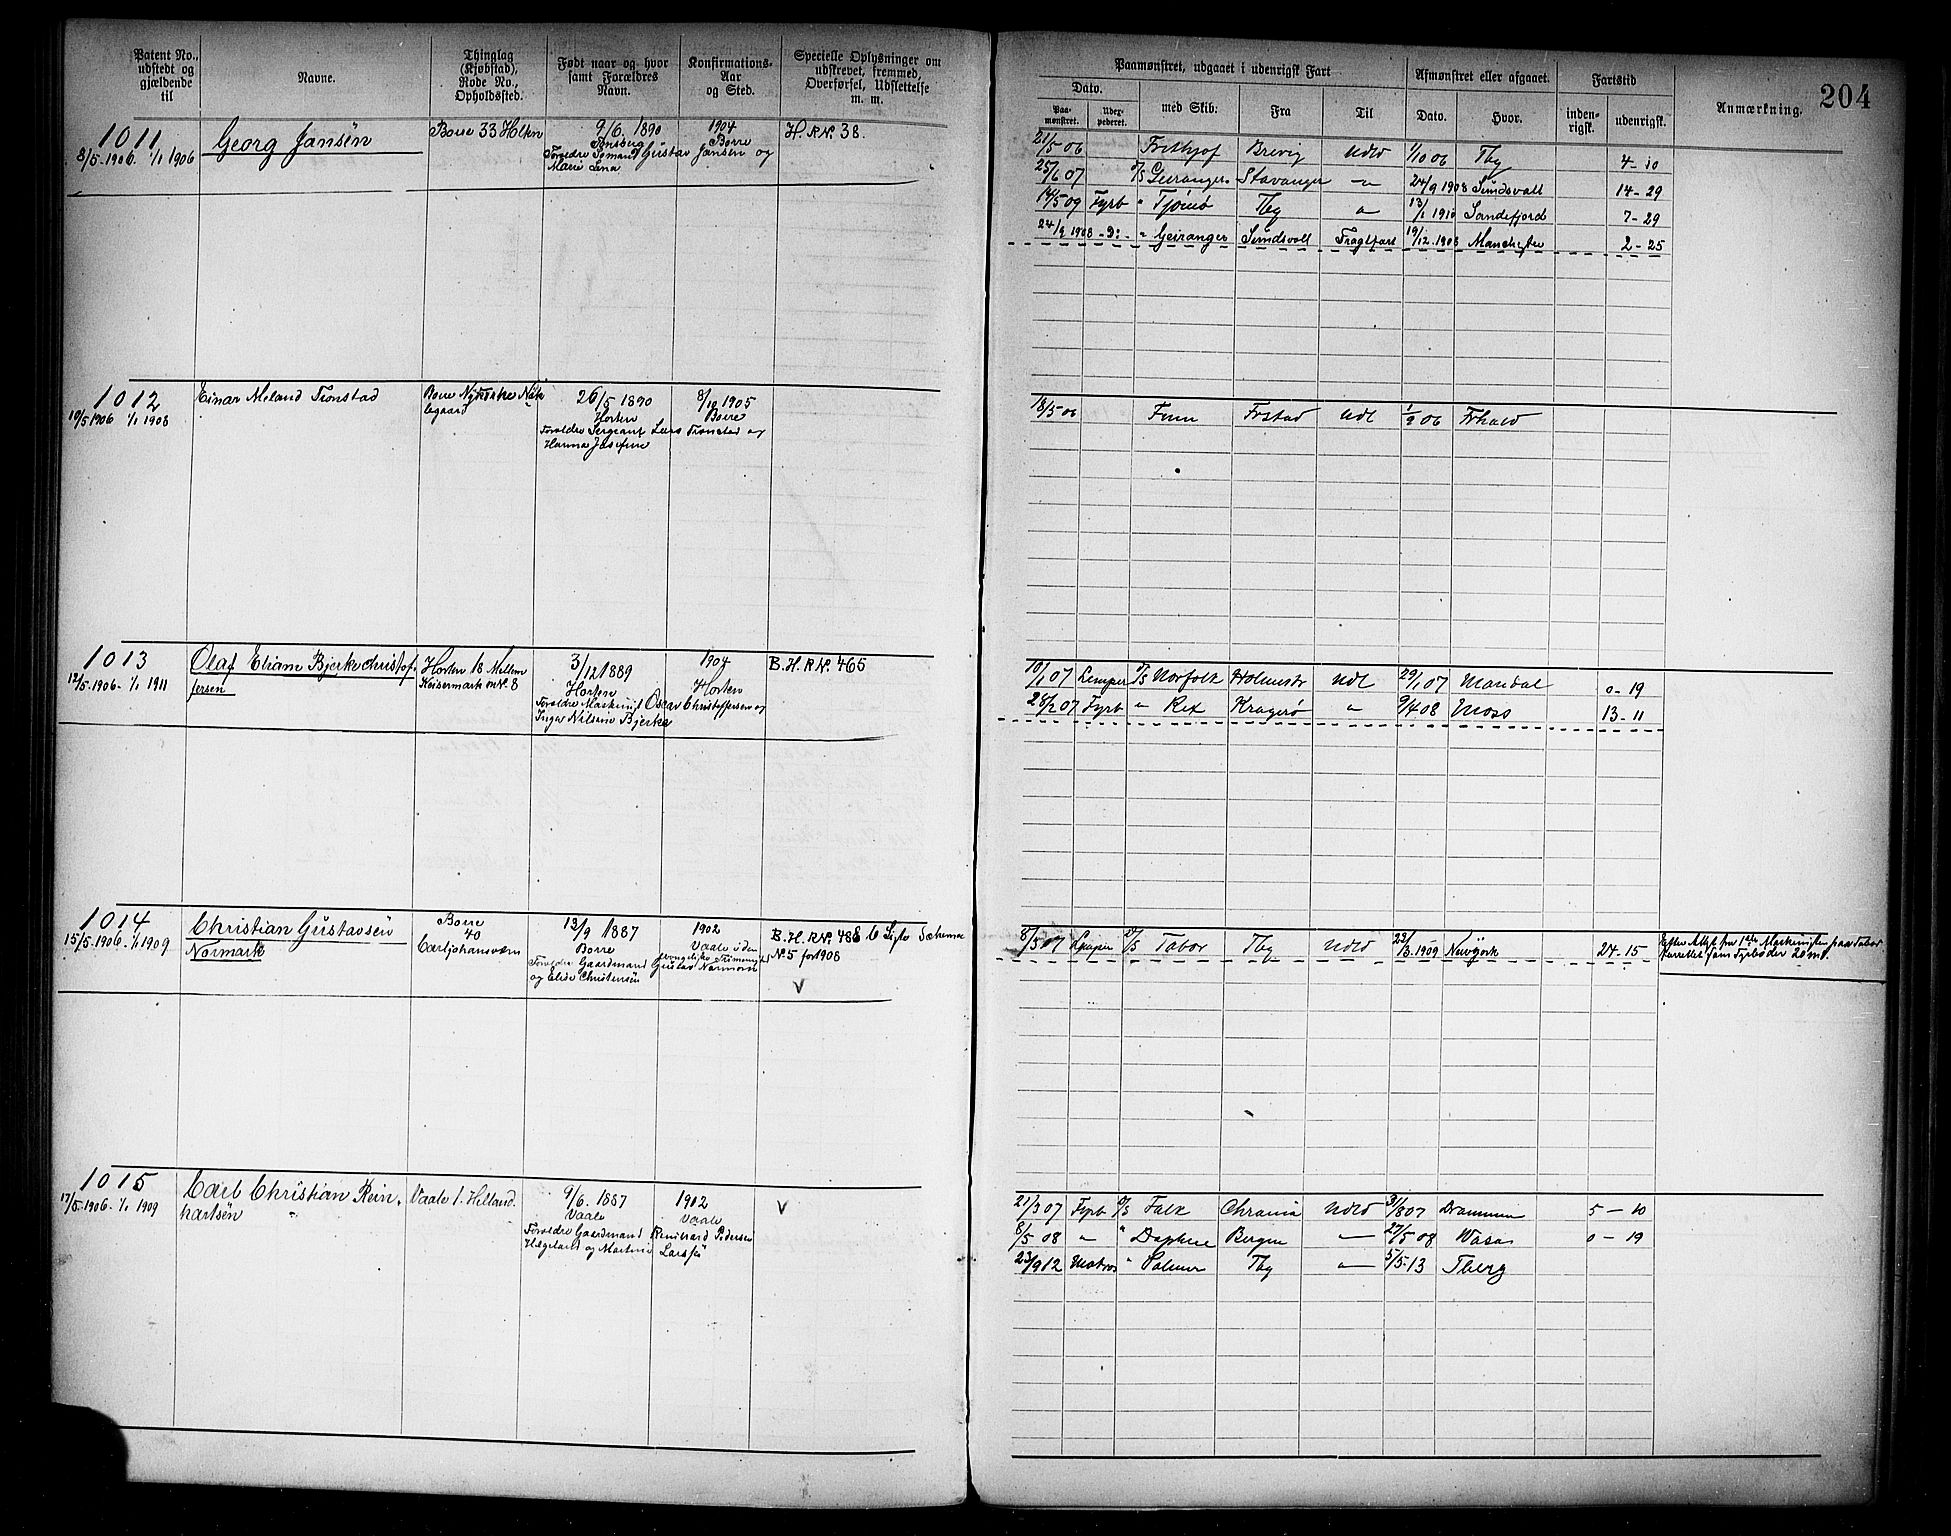 204
Patent No., udstedt og gjældende til
Navne.
Thinglag (Kjøbstad), Rode No., Opholdssted.
Født naar og hvor samt Forældres Navn.
Konfirmations-Aar og Sted.
Specielle Oplysninger om udskrevet, fremmed, Overførsel, Udslettelse m. m.
Paamønstret, udgaaet i udenrigsk Fart
Dato.
Paa-mønstret.
med Skib:
Fra
Til
Afmønstret eller afgaaet.
Dato.
Hvor.
Fartstid
inden-rigsk.
udenrigsk.
Anmærkning.
1011
8/5-1906. 1/1 1906
Georg Jansén
Borre 33 Holten
9/6. 1890
Tønsberg
Forældre Sømand Gustav Jansen og
Marie Lena
1904
Borre
H. R N. 38.
21/5 06 Fridthjof Brevig Udld 1/10 06 Tbg 4-10
25/6 07 D/S Geiranger Stavanger 24/9 1908 Sundsvall 14-29
14/5 09 Fyrb " Tjømø Tbg 13/1 1910 Sandefjord 7-29
24/9 1908 " Geiranger Sundsvall Fragtfart 19/12. 1908 Manchester 2-25
1012
10/5 1906 1/1 1908
Einar Meland Tronstad
Borre
26/5 1890
Horten
Forældre Sergeant Lars Tronstad og
Hanna Josefine
8/10 1905
Borre
18/5 06 Frstad Udl 1/9 06 Frhald
1013
12/5-1906-1/1 1911
Olaf Eliam Bjerke Christof-
fersen
Horten 18 Mellem
Keisermarken N. 8
3/12 1889
Horten
Forældre Maskinist Oscar Christoffersen og
Inga Nilsine Bjerke
1904
Horten
B. H. R N. 465
10/1 07 Lemper D/S Norfolk Holmestr Udl 29/1 07 Mandal 0-19
28/2 07 Fyrb " Rex Kragerø " 9/4 08 Moss 13-11
1014
15/5-1906-1/1 1909
Christian Gustavsén
Normark
Borre
40
Carljohansværn
13/9 1887
Borre
Forældre Gaardmand Gustav Normann
og Elise Christensén
1902
Vaale
B. H. R N. 488
N. 5 for 1908
V
8/5 07 Lemper D/S Tabor Tbg Udld 23/3. 1909 Newyork 24-15
Efter Attest fra 1ste Maskinisten paa Tabor
forrettet som Fyrbøder 20 md.
1015
17/5-1906-1/1 1909
Carl Christian Rein-
hartsén
Vaale 1. Helland.
9/6. 1887
Vaale
Forældre Gaardmand Reinhard Pedersen
Helgeland og Martine Larsdt
1902
Vaale
V
21/3 07 Fyrb D/S Falk Chrania Udld 31/8 07 Drammen 5-10
8/5 08 " " Daphne Bergen 27/5 08 Wasa 0-19
23/9 12 Matros " Palmer Tbg 5/5-13 Tberg